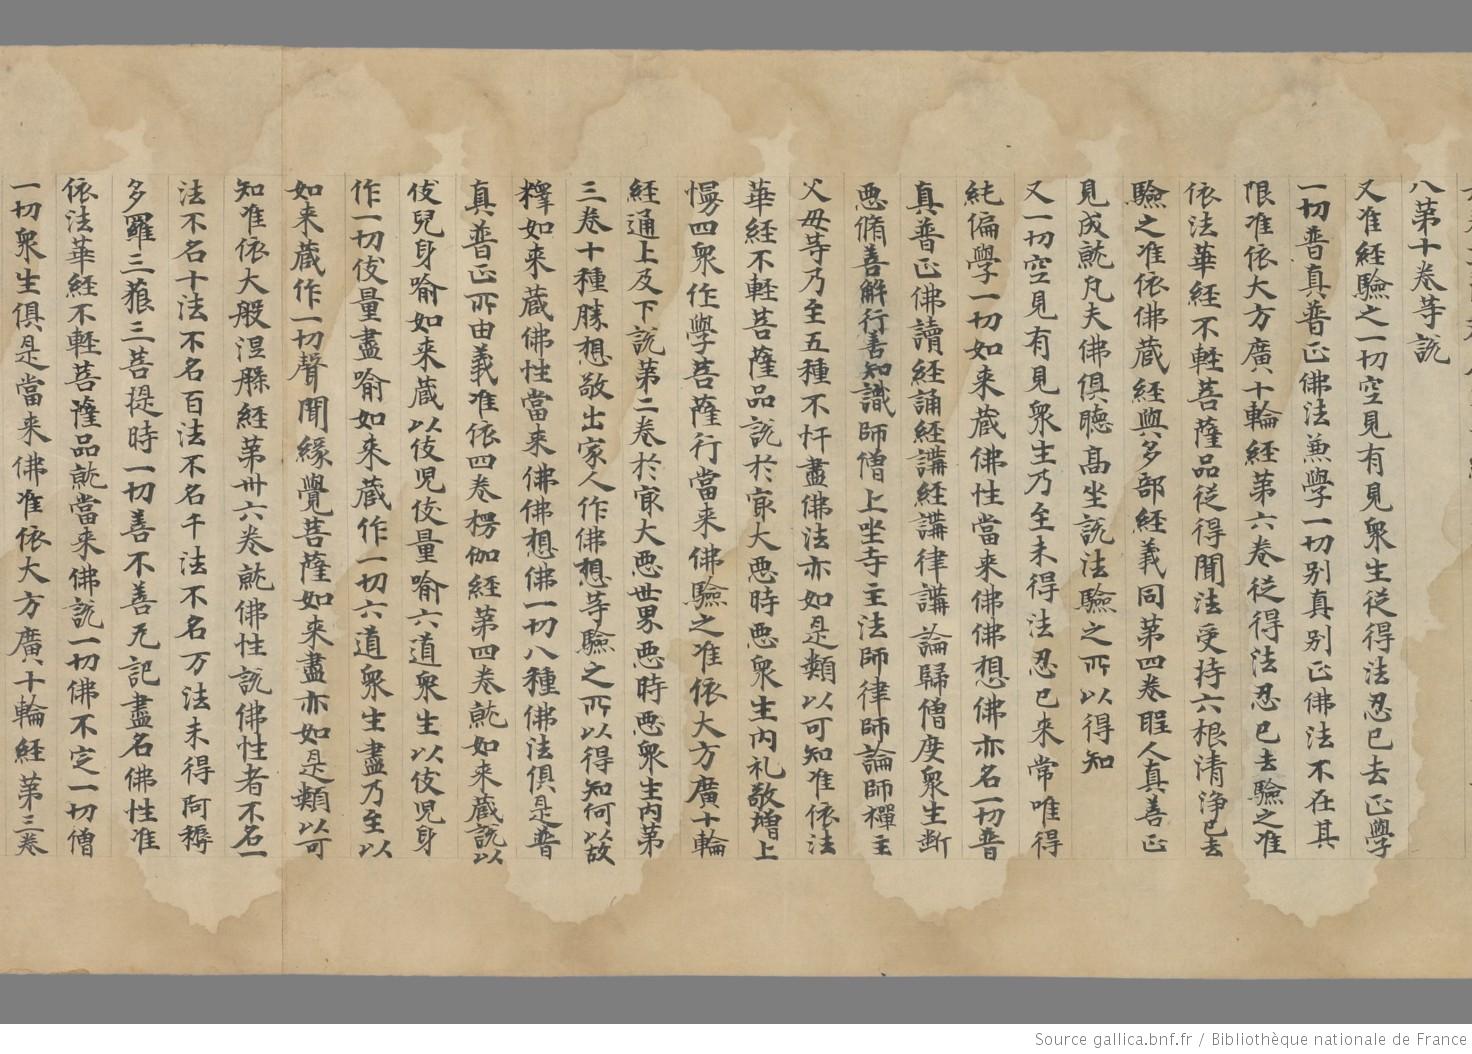 八第十卷等說
又准經驗之一切空見有見衆生從得法忍已去正學
一切普真普正佛法兼學一切别真别正佛法不在其
限准依大方廣十輪經第六卷從得法忍已去驗之准
依法華經不輕菩薩品從得聞法受持六根清淨已去
驗之准依佛藏經與多部經義同第四卷明人真善正
見成就凡夫佛俱聽高坐說法驗之所以得知
又一切空見有見衆生乃至未得法忍已来常唯得
純偏學一切如来藏佛性當来佛佛想佛亦名一切普
真普正佛讀經誦經講經講律講論歸僧度衆生斷
惡脩善解行善知識師僧上坐寺主法師律師論師禪主
父母等乃至五種不忏盡佛法亦如是類以可知准依法
華經不輕菩薩品說於㝡大惡時惡衆生内礼敬增上
慢四衆作學菩薩行當来佛驗之准依大方廣十輪
經通上及下說第二卷於㝡大惡世界惡時惡衆生内第
三卷十種勝想敬出家人作佛想等驗之所以得知何以故
釋如来藏佛性當来佛佛想佛一切八種佛法俱是普
真普正所由義准依四卷楞伽經第四卷就如来藏說以
伎兒身喻如来藏以伎兒伎量喻六道衆生以伎兒身
作一切伎量盡喻如来藏作一切六道衆生盡乃至以
如来藏作一切聲聞緣覺菩薩如来盡亦如是類以可
知准依大般涅槃經第卅六卷就佛性說佛性者不名一
法不名十法不名百法不名千法不名万法未得阿耨
多羅三藐三菩提時一切善不善无記盡名佛性准
依法華經不輕菩薩品就當来佛說一切佛不定一切僧
一切衆生俱是當来佛准依大方廣十輪經第三卷
Source gallica.bnf.fr / Bibliothèque nationale de France